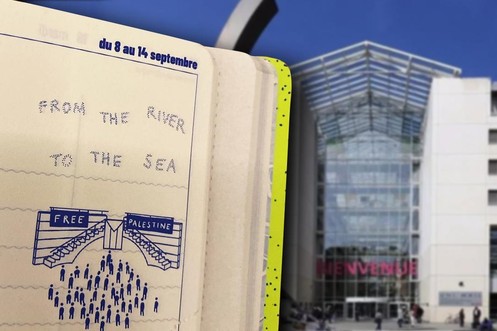 du 8 au 14 septembre
FROM THE RIVER
TO THE SEA
FREE PALESTINE
BIENVENUE